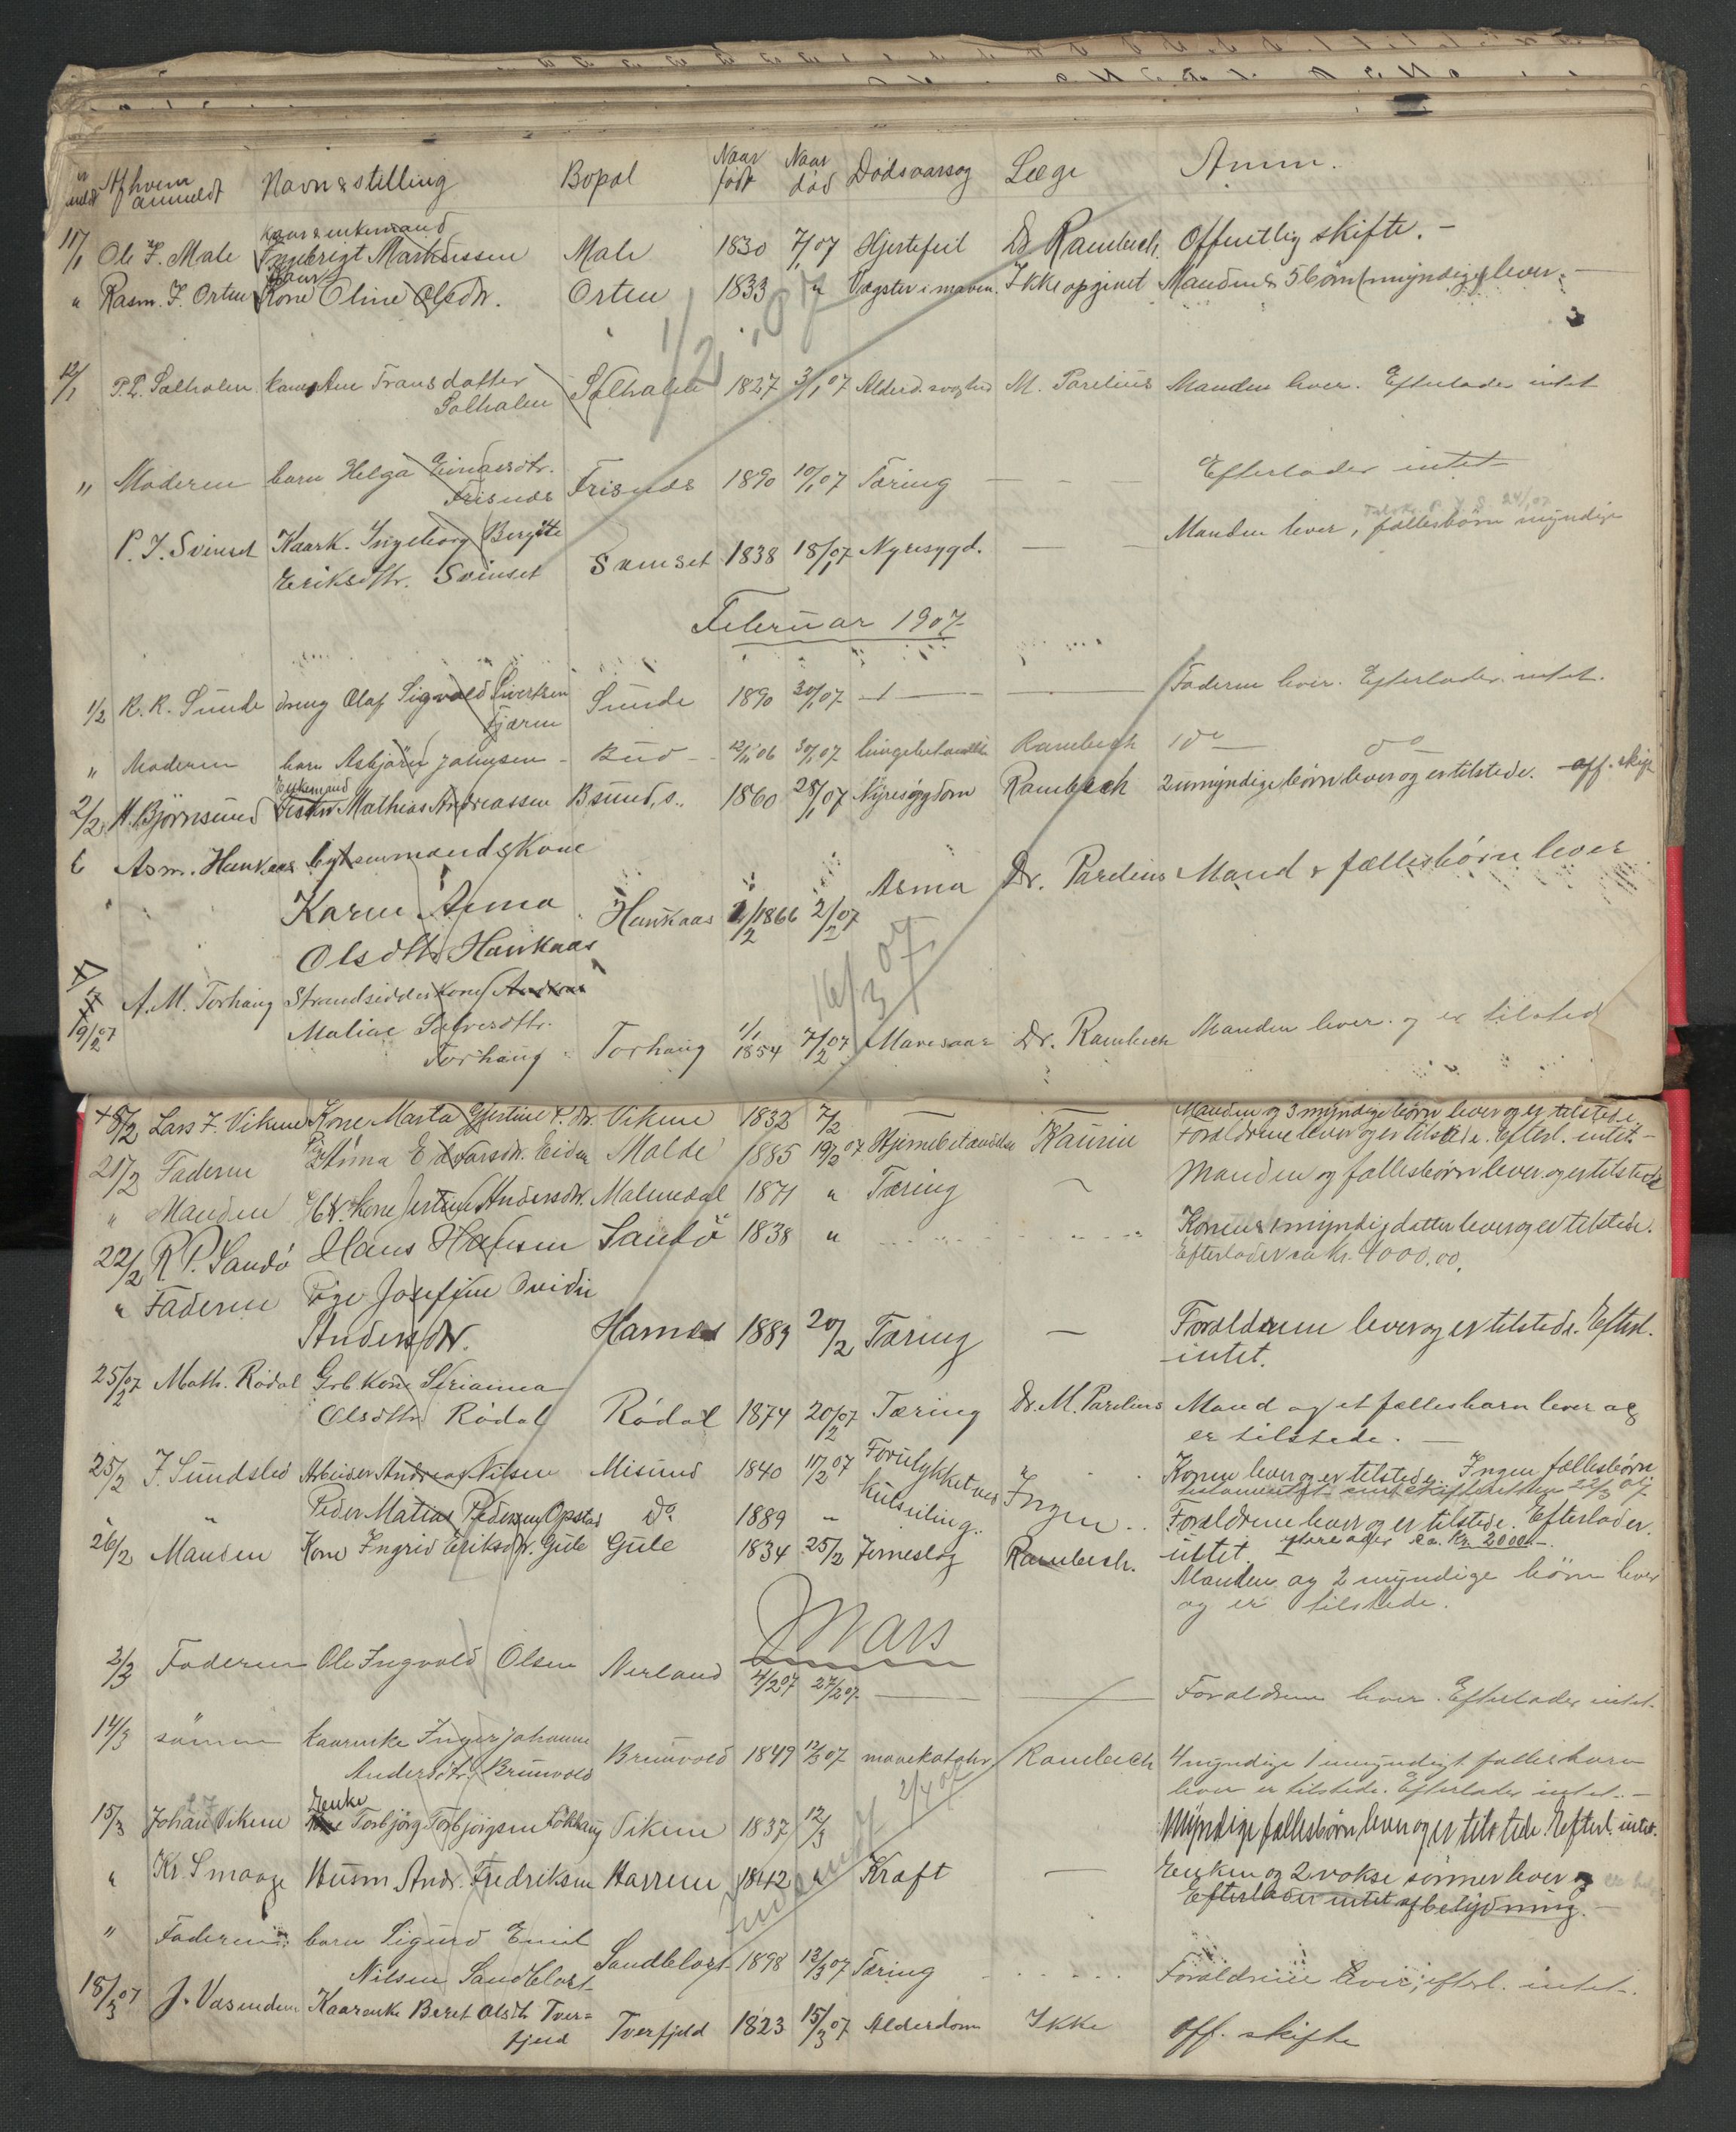 Af hvem anmeldt Navn & stilling Bopæl Naar født Naar død Dødsaarsag Læge Anm.
Kaar & enkemand
11/1 Ole J. Male Ingebrigt Markussen Male 1830 7/1 07 Hjertefeil Dr Rambech. Offentlig skifte. -
Kaar
" Rasm. J. Orten Kone Oline Olsdtr. Orten 1833 " Vægster i maven. Ikke opgivet Manden & 5 børn (myndige) lever. -
1/2 07
12/1 P. L. Solholen kone Ane Fransdatter Solholen 1827 3/1 07 Alderd. svaghed M. Parelius Manden lever. Efterlader intet
Solholen
" Moderen barn Helga Einarsdtr. Frisnes 1890 10/1 07 Tæring — Efterlader intet
Frisnes
P. J. Svinset Kaark. Ingeborg Bergitte Svinset 1838 18/1 07 Nyresygd. — Manden lever, fællesbørn myndige
24/1 07
Eriksdtr. Svinset
Februar 1907
1/2 R. R. Sunde dreng Olaf Sigvald Sivertsen Sunde 1890 30/1 07 — — Faderen lever. Efterlader intet.
" Moderen barn Asbjørn Johansen - Bud - 12/11 06 30/1 07 Rambech do — do
Enkemand
2/2 M. Bjørnsund Fisker Mathias Andreassen Bsund, s. 1860 28/1 07 Nyresygdom Rambech 2 umyndige børn lever og er tilstede. - off. skifte
6 Asm. Haukaas bygselmands kone
Karen Anna Haukaas 2/2 1866 2/2 07 Asma Dr. Parelius Mand & fællesbørn lever
Olsdtr Haukaas
16/3 07
A. M. Torhaug Strandsidderkone
19/2 07 Maliae Torhaug 1/1 1854 7/2 07 Mavesaar Dr. Rambech Manden lever. og er tilsted
Torhaug
+ 8/2 Lars J. Vikene Kone Marta Gjertine P. dtr. Vikene 1832 7/2 Manden og 3 myndige børn lever og er tilstede.
21/2 Faderen Pige Anna Edvarsdtr. Eiden Malde 1885 19/2 07 Hjernebetændelse Kaurin Forældrene lever og er tilstede. Efterl. intet. -
" Manden Kone Jertine Andersdtr. Malmedal 1871 " Tæring ~ Manden og fællesbørn lever og er tilstede
22/2 R. P. Sandø Hans Hansen Sandø 1838 " Konen & 1 myndig datter lever og er tilstede.
Efterlader ca kr. 4000.00.
" Faderen Pige Josefine Ovidie
Andersdtr. Harnes 1889 20/2 Tæring — Forældrene lever og er tilstede. Efterl.
intet.
25/2 07 Math. Rødal Grb. kone Serianna
Olsdtr Rødal Rødal 1874 20/2 07 Tæring Dr. M. Parelius Mand og et fællesbarn lever og
er tilstede. —
25/2 J. Sundsbø Arbeider Andreas Nilsen Misund 1840 11/2 07 Forulykket ved " Konen lever og er tilstede. Ingen fællesbørn
22/3 07
" Peder Matias Pedersen Opstad do 1889 " kulseiling. Ingen Forældrene lever og er tilstede. Efterlader
intet.
26/2 Manden Kone Ingrid Eriksdtr. Gule Gule 1834 25/2 Jerneslag Rambech. ca. Kr. 2000 -.
Manden og 2 myndige børn lever
og er tilstede.
Mars
2/3 Faderen Ole Ingvald Olsen Nerland 4/2 07 27/2 07 — — Forældrene lever. Efterlader intet.
14/3 sønnen kaarenke Inger Johanne
Andersdtr. Brunvold Brunvold 1849 12/3 07 mavekatahr Rambech 4 myndige 1 umyndigt fællesbarn
lever er tilstede. Efterlader intet. -
2/4 07
Enke
15/3 Johan Vikene Torbjørg Torbjørgsen Løkhaug Vikene 1837 12/3 Myndige fællesbørn lever og er tilstede. Efterl. intet.
" Kr. Smaage Husm. Andr. Fredriksen Harren 1842 " Kræft — Enken og 2 vokse sønner lever og
Efterlader intet af betydning. -
" Faderen barn Sigurd Emil
Nilsen Sandblost Sandblost 1898 13/3 07 Tæring Forældrene lever, efterl. intet.
18/3 07 J. Vasenden Kaarenke Beret Olsdtr Tver=
fjeld Tverfjeld 1823 15/3 07 Alderdom Ikke off. skifte